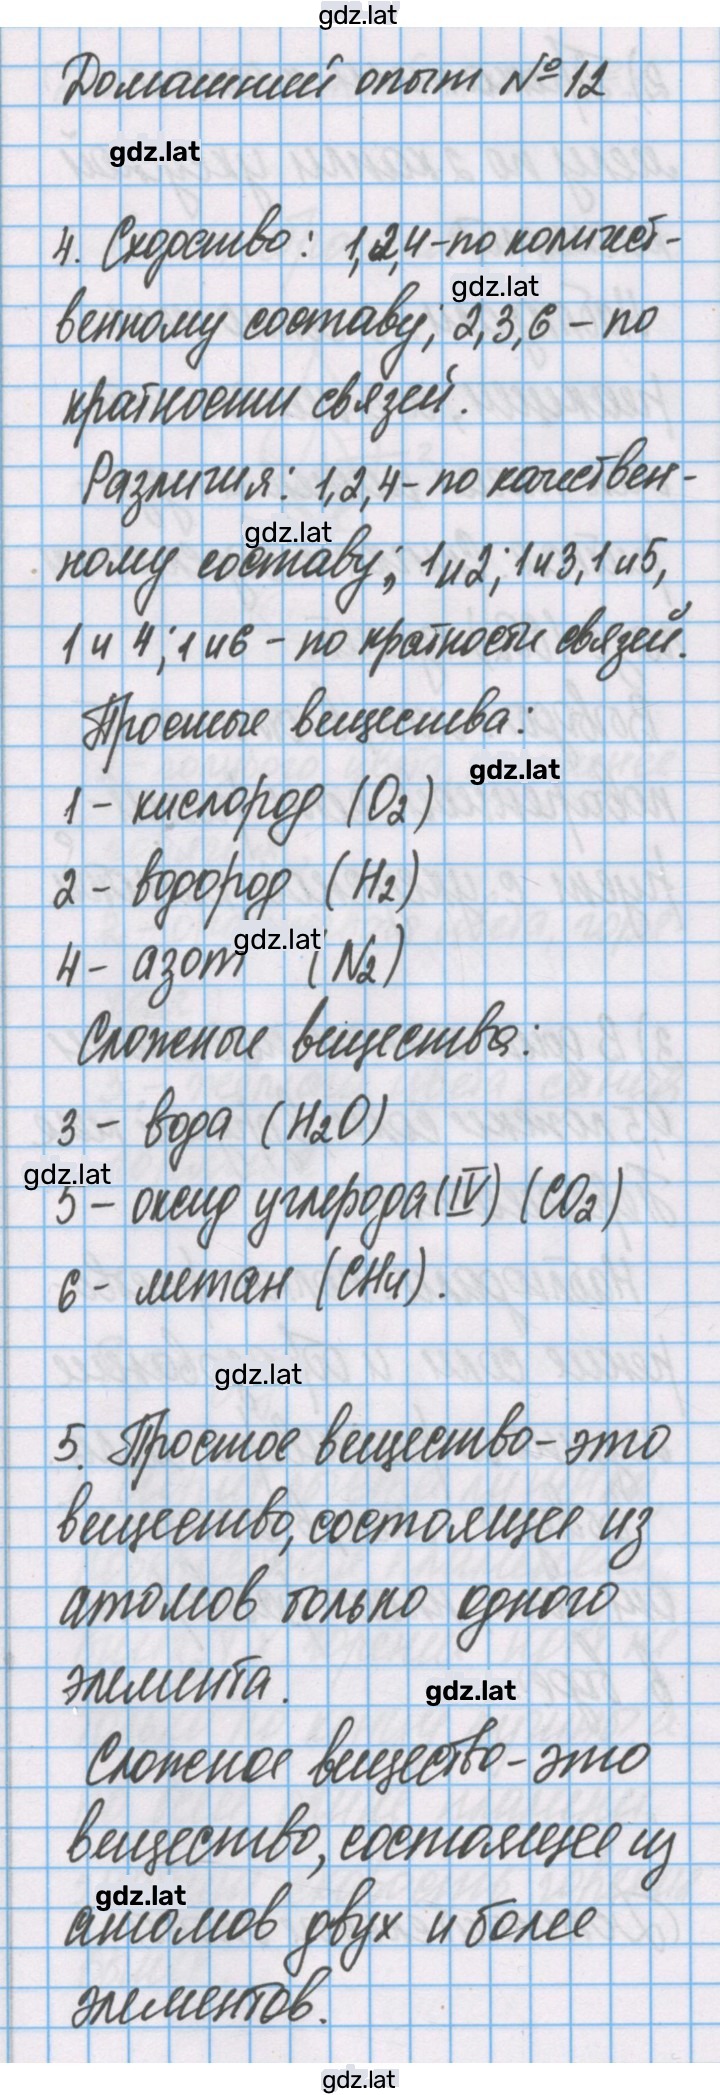 gdz.lat
Домашний опыт № 12
gdz.lat
4. Сходство: 1,2,4-по количест-
gdz.lat
венному составу; 2,3,6 - по
кратности связей.
Различия: 1,2,4- по качествен-
gdz.lat
ному составу; 1и2; 1и3, 1и5,
1 и 4; 1 и6 - по кратности связей.
Простые вещества:
gdz.lat
1 - кислород (O₂)
2 - водород (H₂)
gdz.lat
4 - азот (N₂)
Сложные вещества:
3 - вода (H₂O)
gdz.lat
5 - оксид углерода (IV) (CO₂)
6 - метан (CH₄).
gdz.lat
5. Простое вещество - это
вещество, состоящее из
атомов только одного
элемента.
gdz.lat
Сложное вещество - это
вещество, состоящее из
gdz.lat
атомов двух и более
элементов.
gdz.lat